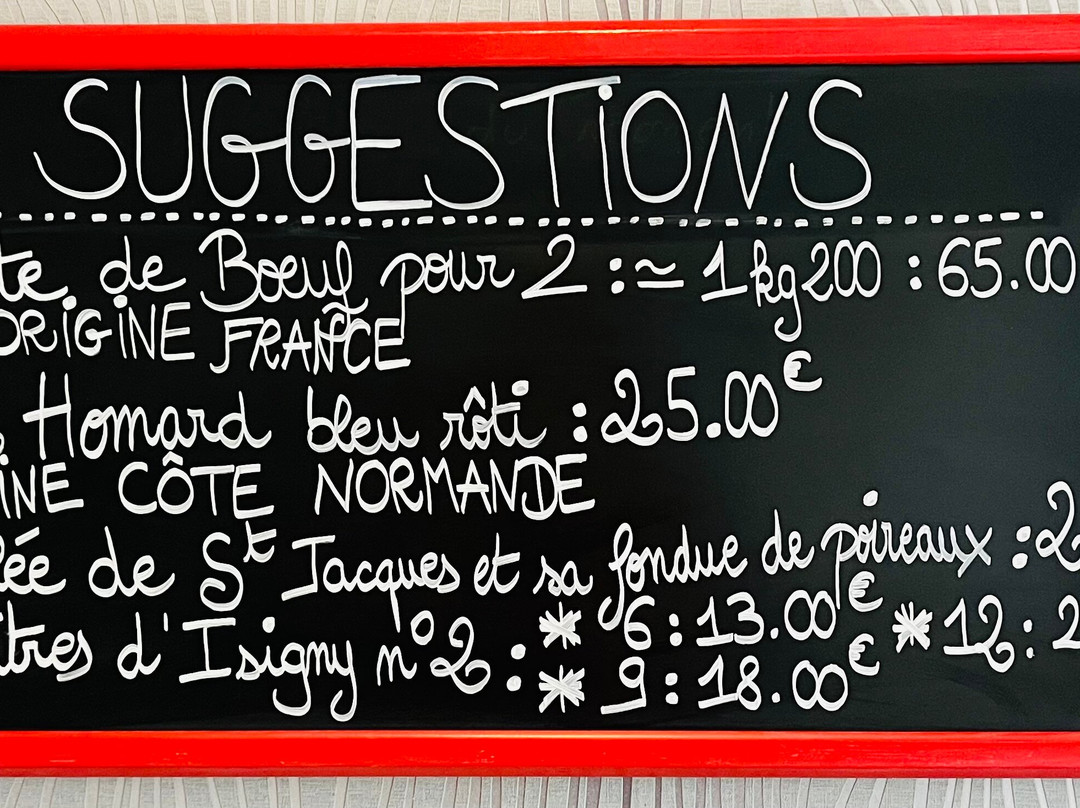 SUGGESTIONS
te de Boeuf pour 2 : ≃ 1kg200 : 65.00
ORIGINE FRANCE
Homard bleu rôti : 25.00€
INE CÔTE NORMANDE
lée de St Jacques et sa fondue de poireaux : 2
îtres d'Isigny n°2 : * 6 : 13.00€ * 12 : 2
* 9 : 18.00€